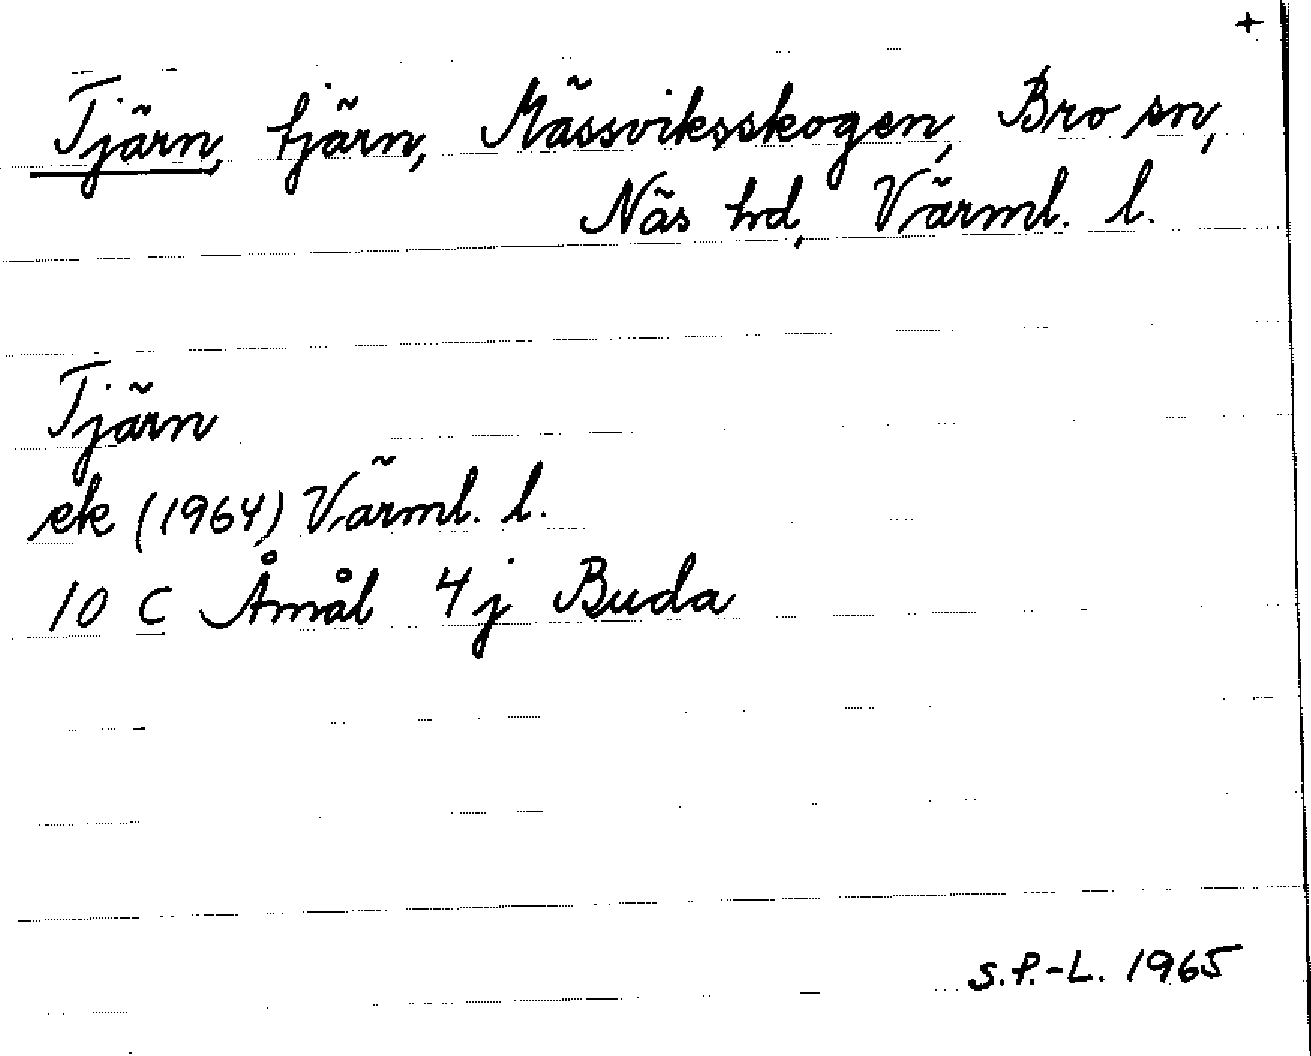 +
Tjärn, tjärn, Mässviksskogen, Bro sn,
Näs hd, Värml. l.
Tjärn
ek (1964) Värml. l.
10 C Åmål 4j Buda
S.P.-L. 1965